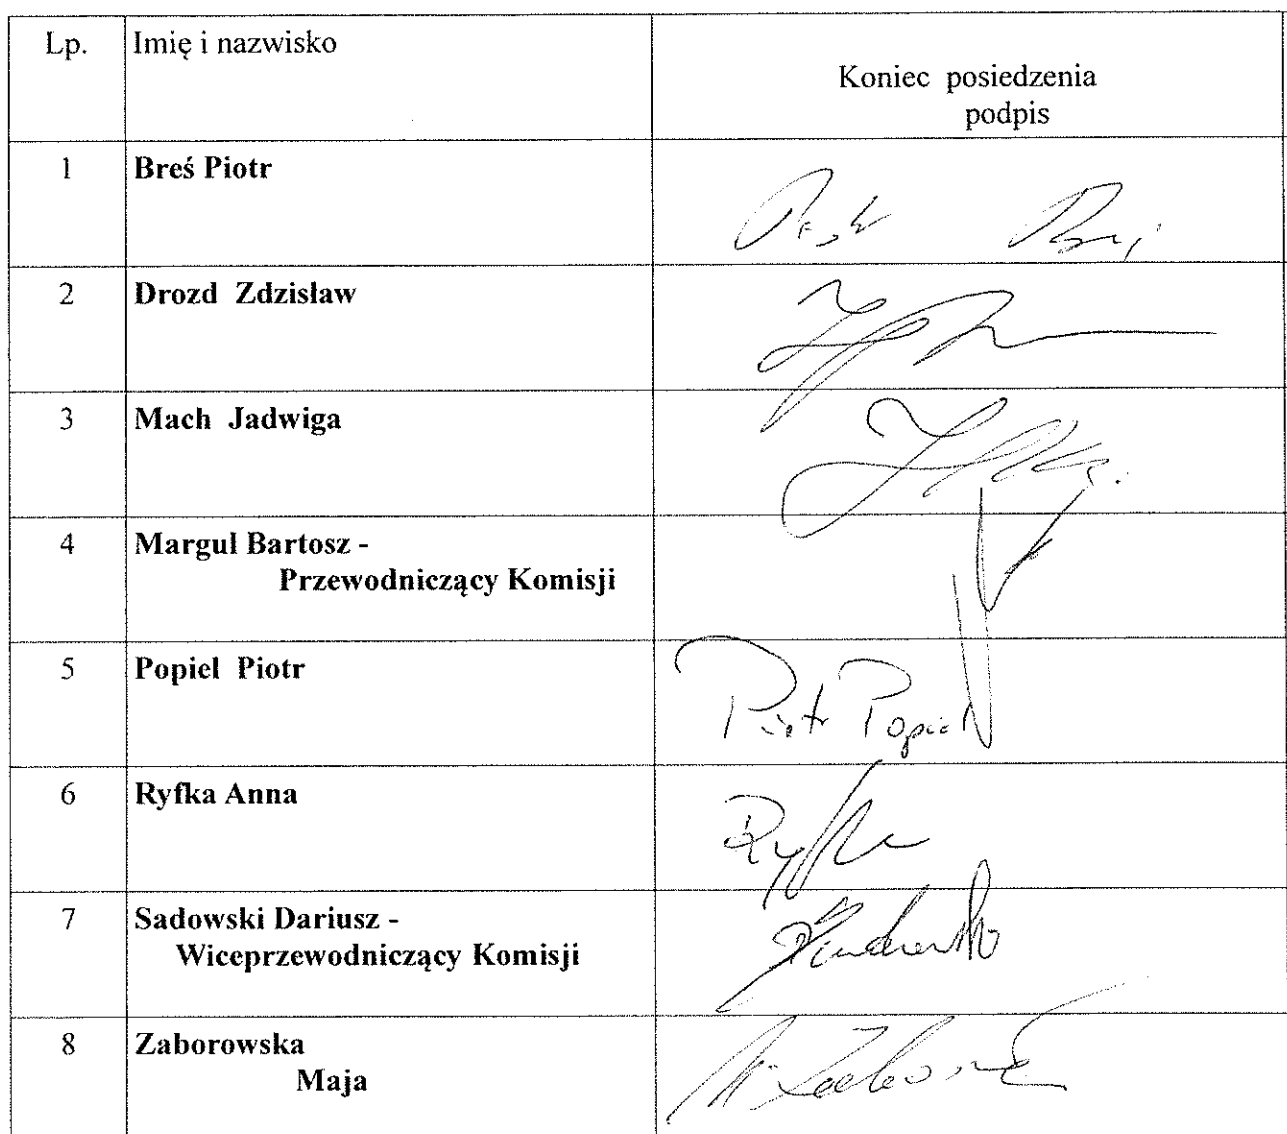 Lp. Imię i nazwisko
Koniec posiedzenia
podpis
1 Breś Piotr
2 Drozd Zdzisław
3 Mach Jadwiga
4 Margul Bartosz -
Przewodniczący Komisji
5 Popiel Piotr Piotr Popiel
6 Ryfka Anna Ryfka
7 Sadowski Dariusz -
Wiceprzewodniczący Komisji
8 Zaborowska
Maja